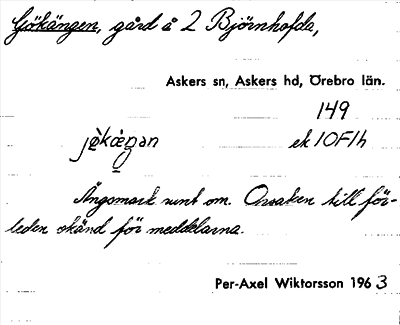 Gökängen, gård å 2 Björnhofda,
Askers sn, Askers hd, Örebro län.
149
ek 10F1h
Ängsmark runt om. Orsaken till för-
leden okänd för meddelarna.
Per-Axel Wiktorsson 1963